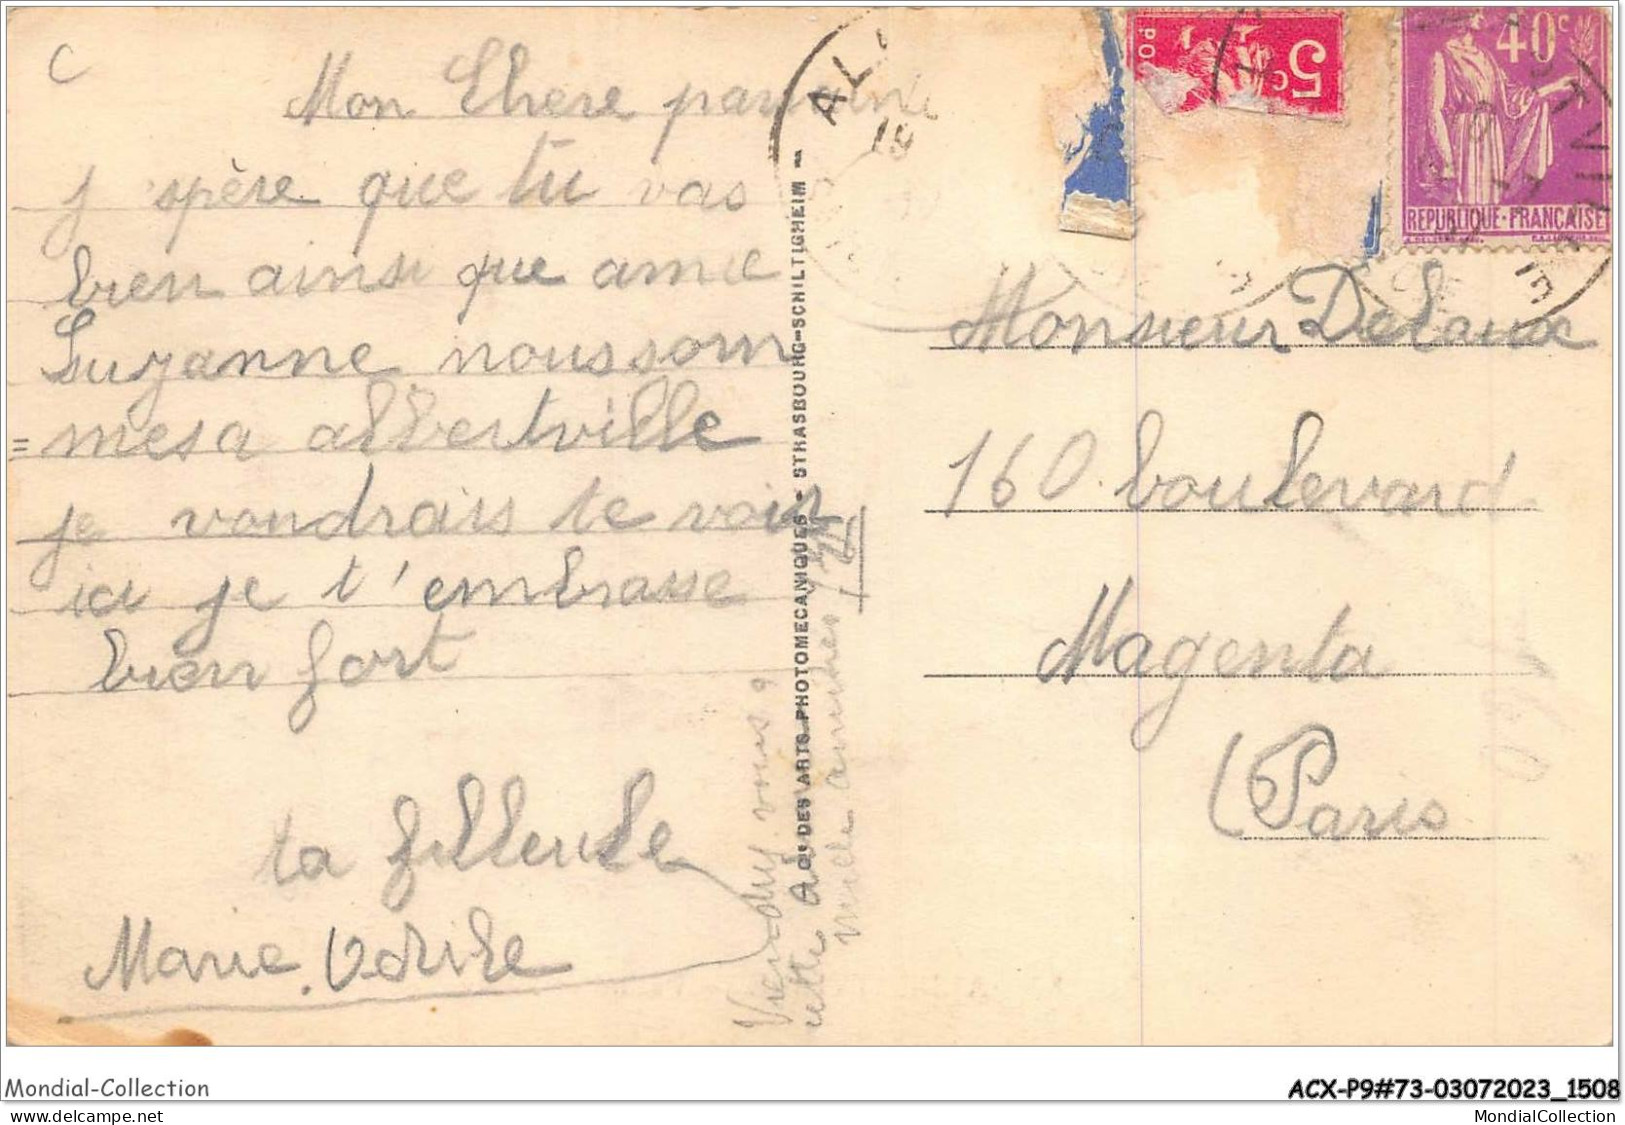 C
Mon Chere parraine
j'spère que tu vas
bien ainsi que amie
Suzanne nous som
= mes a albertville
je voudrais te voir
ici je t'embrasse
bien fort
ta filleule
Marie
Viendrez vous
cette
mille
A.Cie DES ARTS PHOTOMECANIQUES - STRASBOURG-SCHILTIGHEIM -
AL
19
5c
PO
40c
REPUBLIQUE·FRANÇAISE
RTVI
Monsieur Delaux
160 boulevard
Magenta
(Paris
Mondial-Collection
ACX-P9#73-03072023_1508
MondialCollection